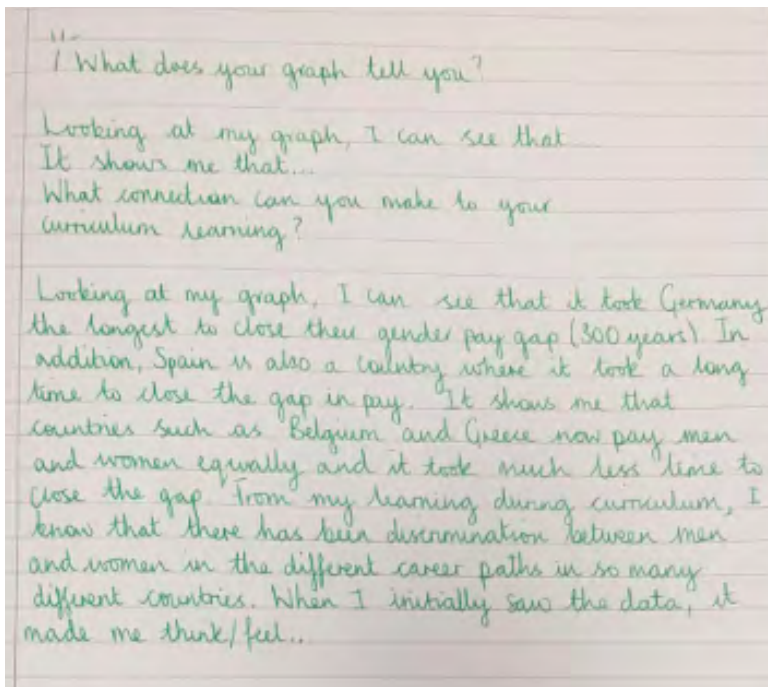 What does your graph tell you?
Looking at my graph, I can see that
It shows me that...
What connection can you make to your
curriculum learning?
Looking at my graph, I can see that it took Germany
the longest to close their gender pay gap (300 years). In
addition, Spain is also a country where it took a long
time to close the gap in pay. It shows me that
countries such as Belgium and Greece now pay men
and women equally and it took much less time to
close the gap. From my learning during curriculum, I
know that there has been discrimination between men
and women in the different career paths in so many
different countries. When I initially saw the data, it
made me think/feel..